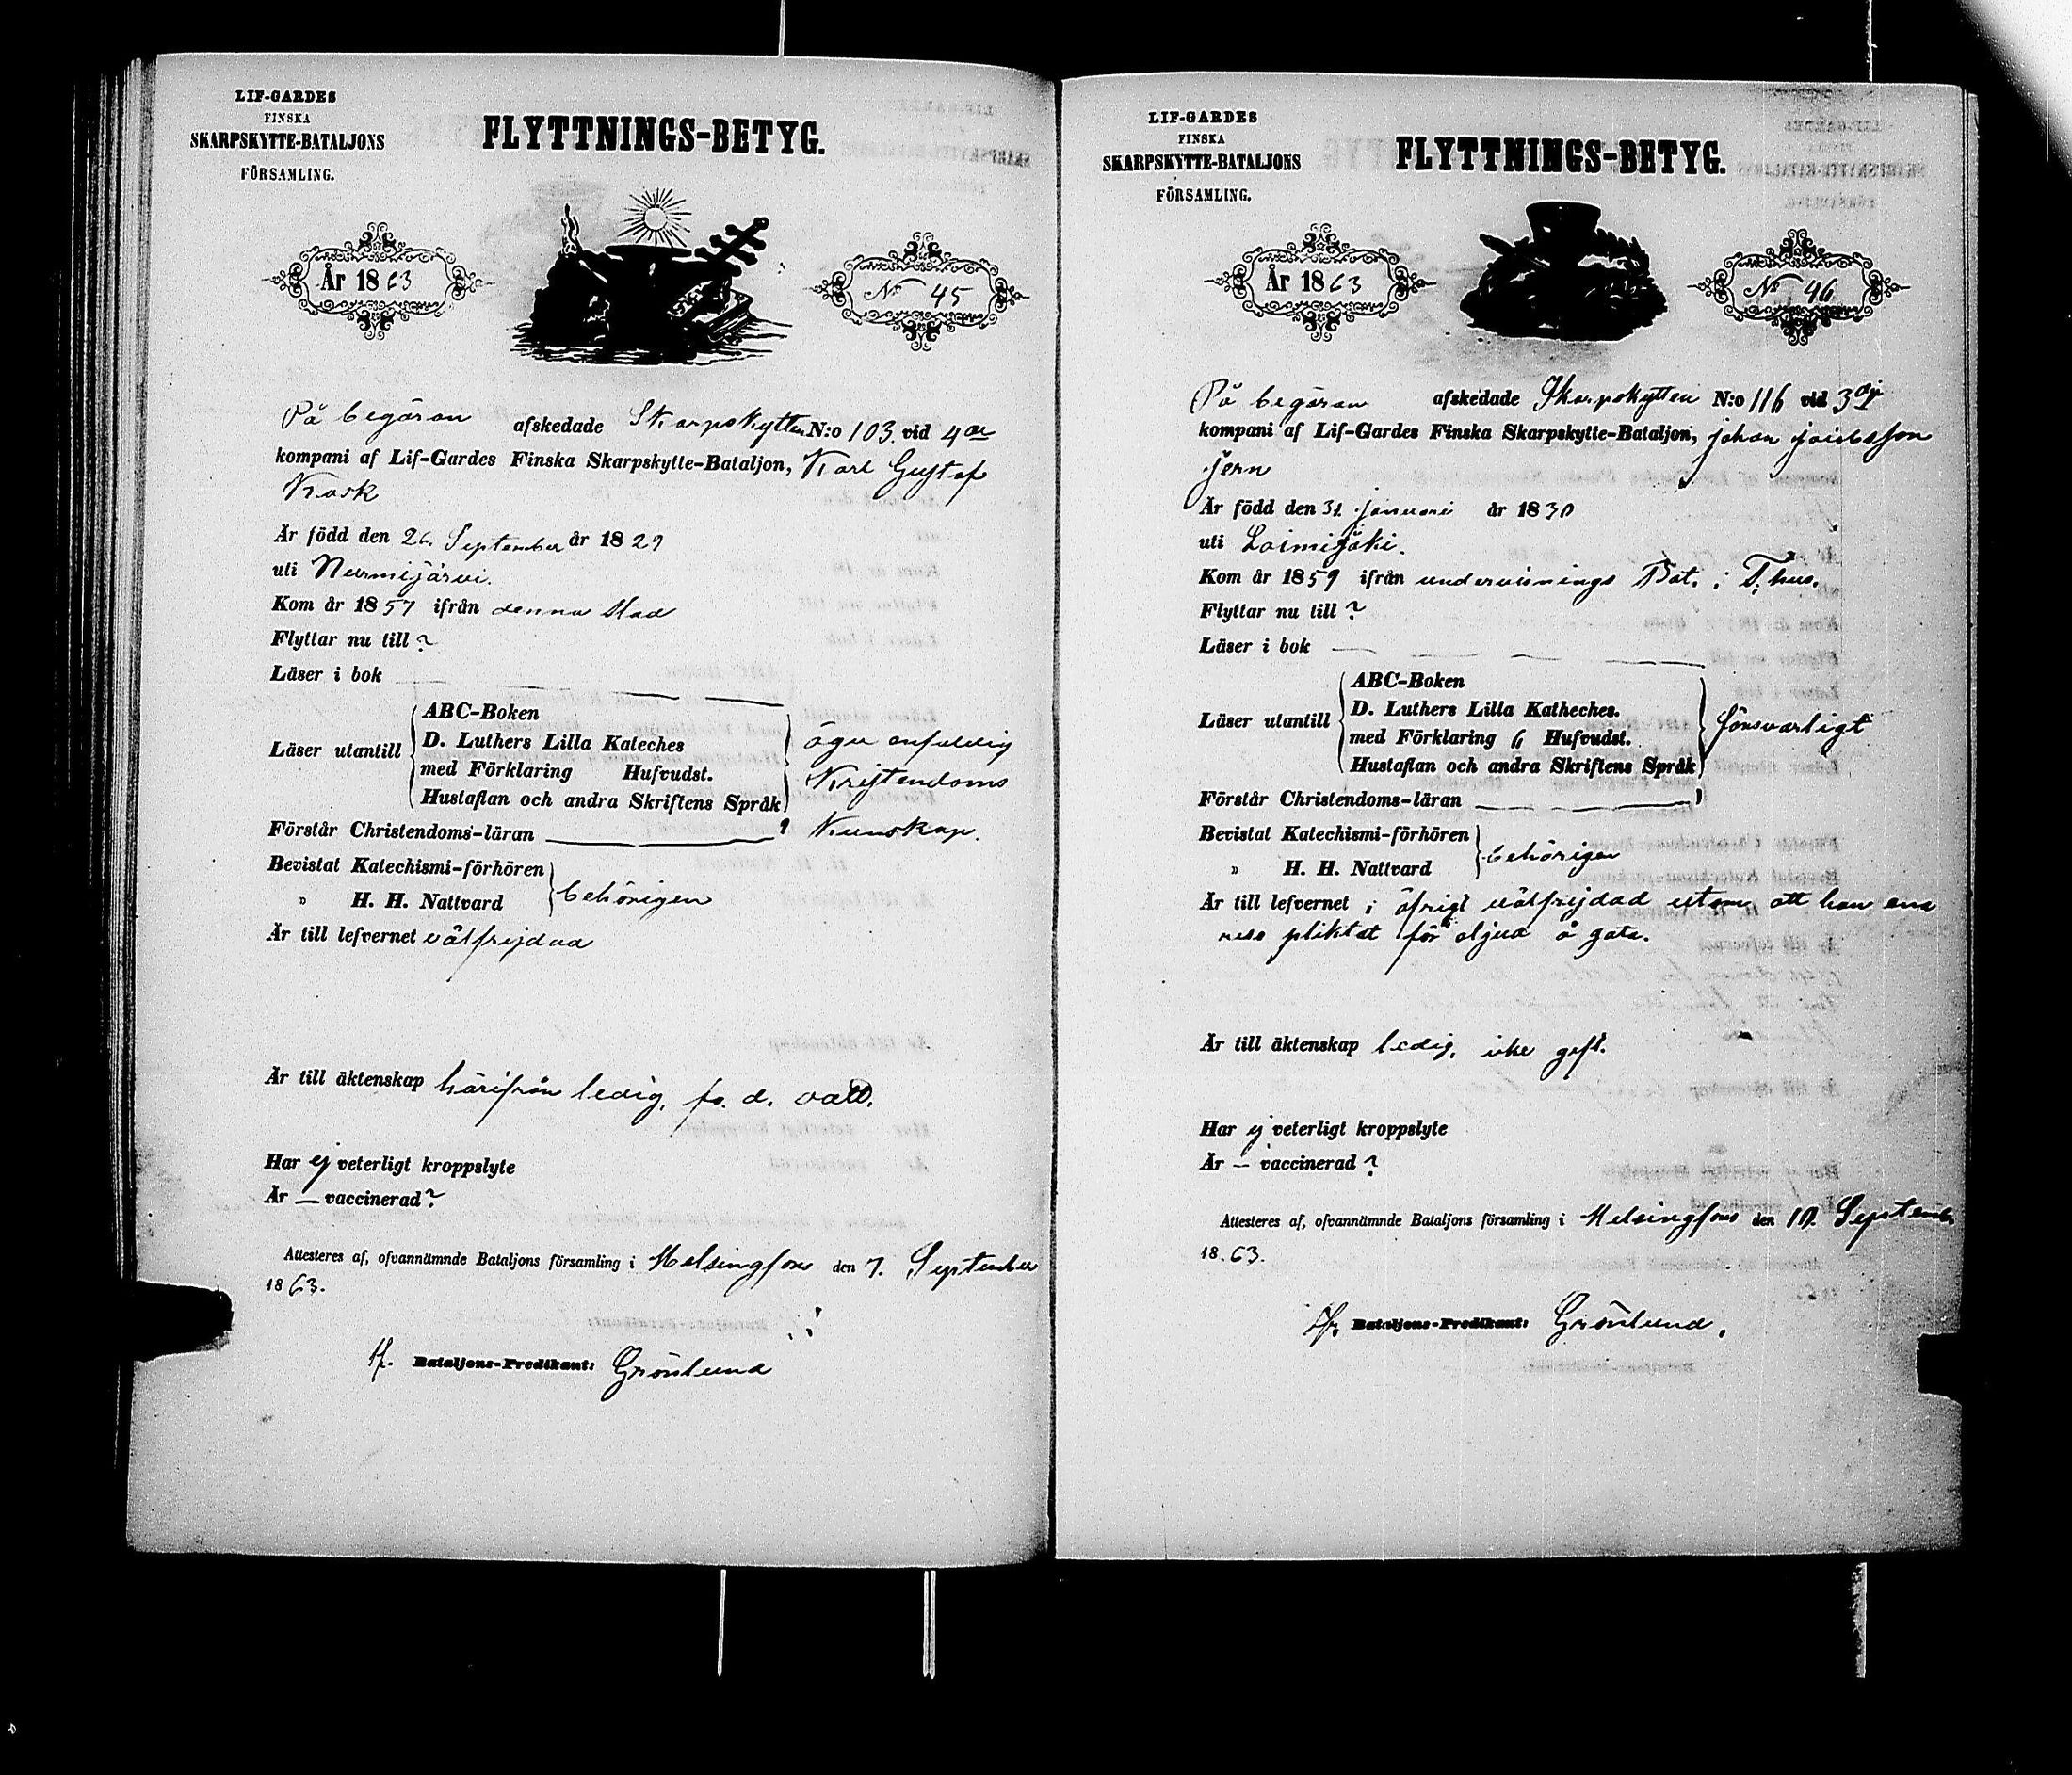 LIF-GARDES
FINSKA
SKARPSKYTTE-BATALJONS
FÖRSAMLING.
FLYTTNINGS-BETYG.
År 1863
No 45
På begäran afskedade Skarpskytten N:o 103. vid 4de
kompani af Lif-Gardes Finska Skarpskytte-Bataljon, Karl Gustaf
Kask
Är född den 26. September år 1829
uti Nurmijärvi.
Kom år 1857 ifrån denna stad
Flyttar nu till ?
Läser i bok
ABC-Boken
Läser utantill D. Luthers Lilla Kateches äger enfaldig
med Förklaring Hufvudst. Kristendoms
Hustaflan och andra Skriftens Språk
Förstår Christendoms-läran Kunskap.
Bevistat Katechismi-förhören
" H. H. Nattvard behörigen
Är till lefvernet välfrejdad
Är till äktenskap härifrån ledig, fr. d.
Har ej veterligt kroppslyte
Är — vaccinerad?
Attesteres af, ofvannämnde Bataljons församling i Helsingfors den 7. September
1863.
tf. Bataljons-Predikant: Grönlund
LIF-GARDES
FINSKA
SKARPSKYTTE-BATALJONS
FÖRSAMLING.
FLYTTNINGS-BETYG.
År 1863
No 46
På begäran afskedade Skarpskytten N:o 116 vid 3dje
kompani af Lif-Gardes Finska Skarpskytte-Bataljon, Johan Jakobsson
Jern
Är född den 31. Januari år 1830
uti Loimijoki.
Kom år 1859 ifrån undervisnings Bat. i T.hus.
Flyttar nu till ?
Läser i bok
ABC-Boken
Läser utantill D. Luthers Lilla Katheches. försvarligt
med Förklaring 6 Hufvudst.
Hustaflan och andra Skriftens Språk
Förstår Christendoms-läran
Bevistat Katechismi-förhören
" H. H. Nattvard behörigen
Är till lefvernet i öfrigt välfrejdad utom att han
pliktat för oljud å gata.
Är till äktenskap ledig, icke gift.
Har ej veterligt kroppslyte
Är — vaccinerad ?
Attesteres af, ofvannämnde Bataljons församling i Helsingfors den 10. September
1863.
tf. Bataljons-Predikant: Grönlund.